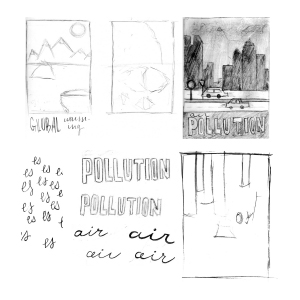 GLOBAL warm-
ing
POLLUTION
es
es es es
es es es
es es es
es es
es
POLLUTION
POLLUTION
air air
air air